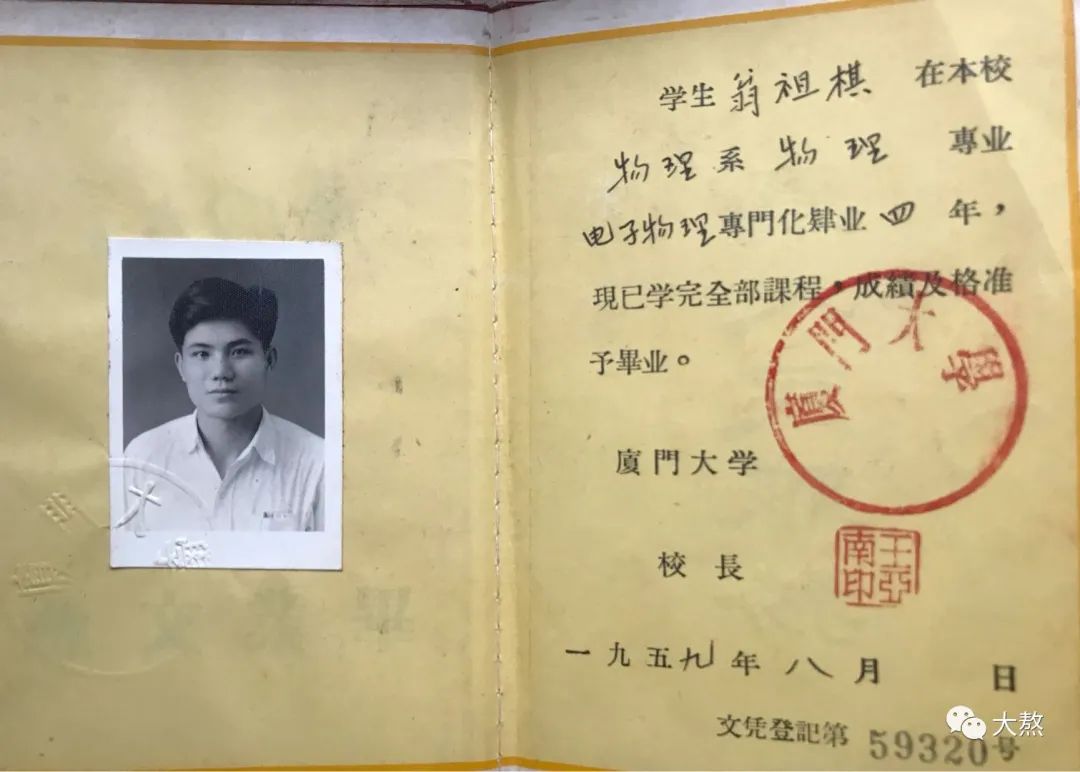 学生 翁祖棋 在本校
物理系物理 專业
电子物理專門化肄业四年，
現已学完全部課程，成績及格准
予畢业。
廈門大學
廈門大学
校長
王亞南印
一九五九年八月 日
文凭登記第59320号
大熬
廈門大學